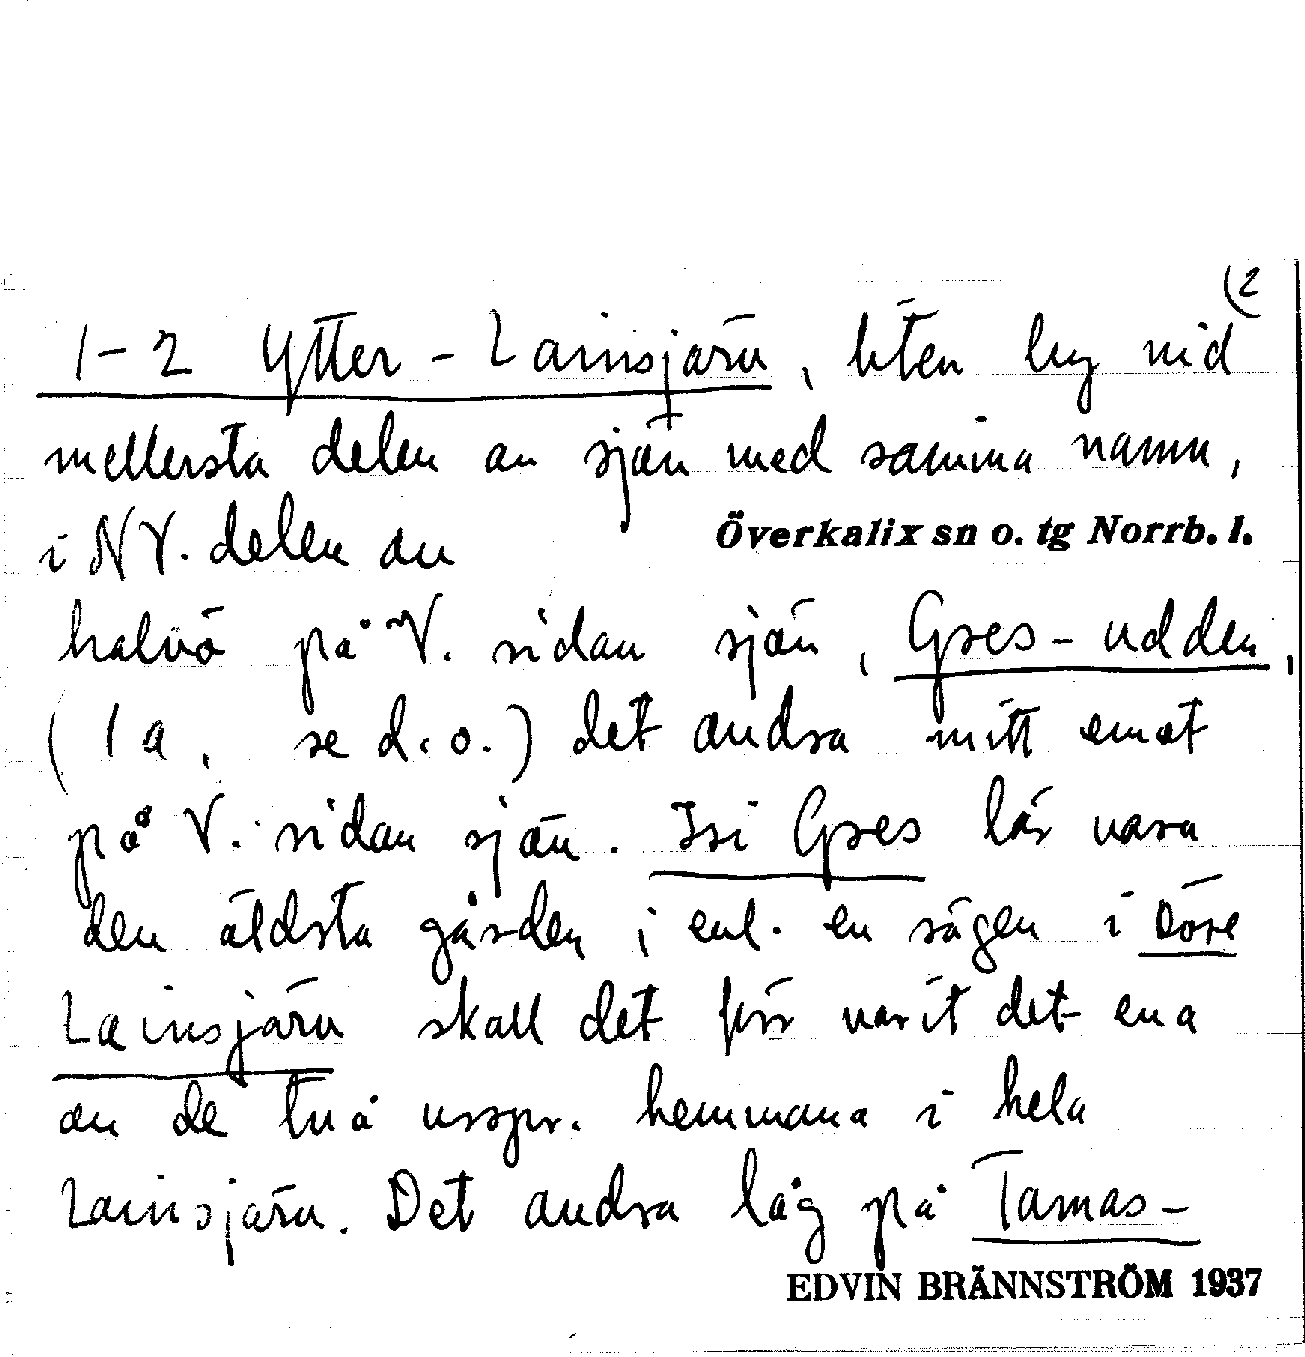 (2
1-2 Ytter-Lainsjärv, liten by vid
mellersta delen av sjön med samma namn,
i NV. delen av
Överkalix sn o. tg Norrb. l.
halvö på V. sidan sjön, Gres-udden,
(1a, se d.o.) det andra mitt emot
på V. sidan sjön. Isi Gres lär vara
den äldsta gården; enl. en sägen i Övre
Lainsjärv skall det förr varit det ena
av de två urspr. hemmana i hela
Lainsjärv. Det andra låg på Tamas-
EDVIN BRÄNNSTRÖM 1937